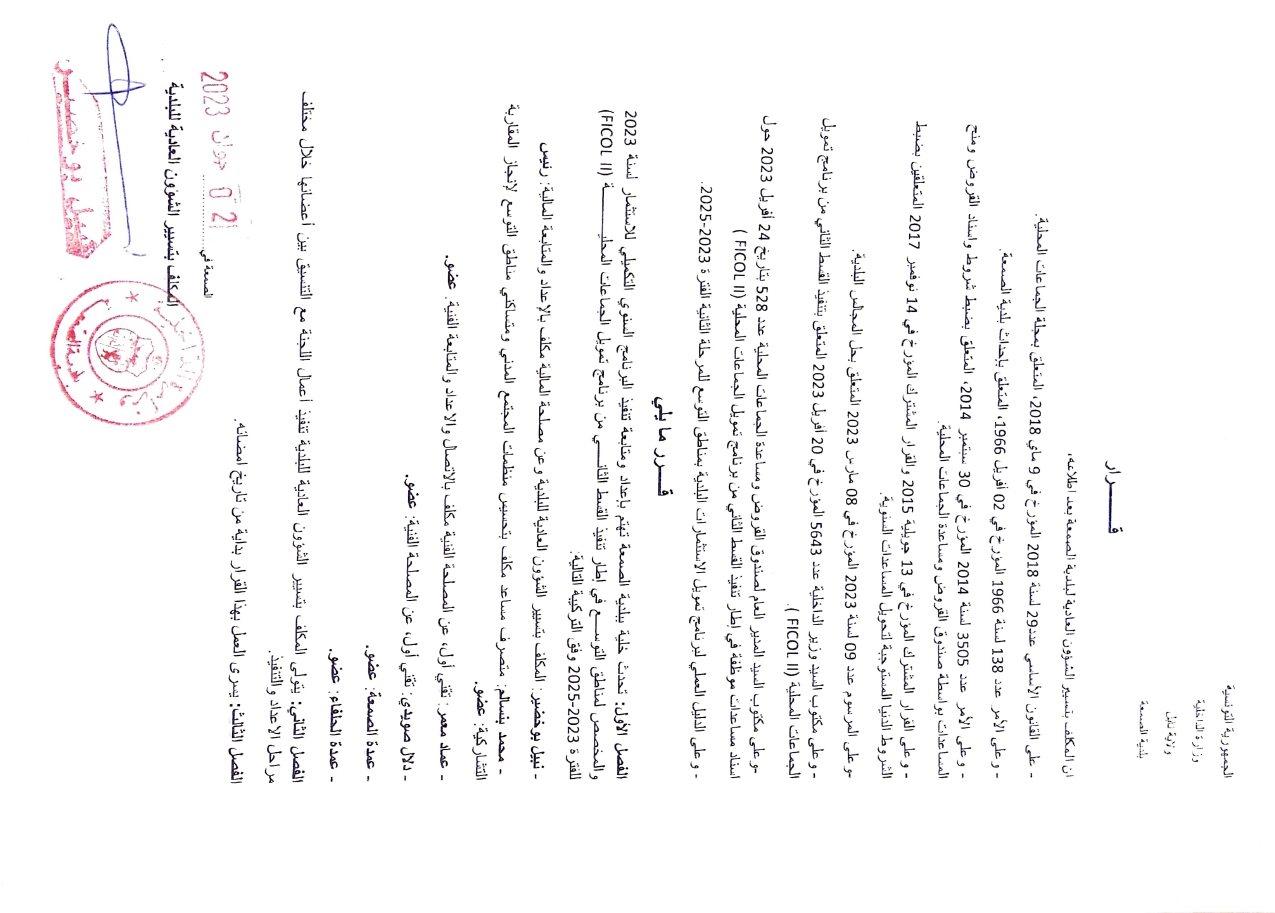 الجمهورية التونسية
وزارة الداخلية
ولاية نابل
بلدية الصمعة
قـــــــرار
ان المكلف بتسيير الشؤون العادية لبلدية الصمعة بعد اطلاعه،
- على القانون الأساسي عدد29 لسنة 2018 المؤرخ في 9 ماي 2018، المتعلق بمجلة الجماعات المحلية.
- وعلى الأمر عدد 138 لسنة 1966 المؤرخ في 02 أفريل 1966، المتعلق بإحداث بلدية الصمعة.
- وعلى الأمر عدد 3505 لسنة 2014 المؤرخ في 30 سبتمبر 2014، المتعلق بضبط شروط واسناد القروض ومنح
المساعدات بواسطة صندوق القروض ومساعدة الجماعات المحلية.
- وعلى القرار المشترك المؤرخ في 13 جويلية 2015 والقرار المشترك المؤرخ في 14 نوفمبر 2017 المتعلقين بضبط
الشروط الدنيا المستوجبة لتحويل المساعدات السنوية.
-وعلى المرسوم عدد 09 لسنة 2023 المؤرخ في 08 مارس 2023 المتعلق بحل المجالس البلدية.
- وعلى مكتوب السيد وزير الداخلية عدد 5643 المؤرخ في 20 أفريل 2023 المتعلق بتنفيذ القسط الثاني من برنامج تمويل
الجماعات المحلية (FICOL II ).
-وعلى مكتوب السيد المدير العام لصندوق القروض ومساعدة الجماعات المحلية عدد 528 بتاريخ 24 أفريل 2023 حول
اسناد مساعدات موظفة في إطار تنفيذ القسط الثاني من برنامج تمويل الجماعات المحلية (FICOL II )
- وعلى الدليل العملي لبرنامج تمويل الاستثمارات البلدية بمناطق التوسع للمرحلة الثانية الفترة 2023-2025.
قـــــرر ما يلي
الفصل الأول: تحدث خلية ببلدية الصمعة تهتم بإعداد ومتابعة تنفيذ البرنامج السنوي التكميلي للاستثمار لسنة 2023
والمخصص لمناطق التوســـع في إطار تنفيذ القسط الثانـــي من برنامج تمويل الجماعات المحليـــــــة (FICOL II)
للفترة 2023-2025 وفق التركيبة التالية:
- نبيل بوخضير: المكلف بتسيير الشؤون العادية للبلدية وعن مصلحة المالية مكلف بالإعداد والمتابعة المالية: رئيس
- محمد بنسالم: متصرف مساعد مكلف بتحسيس منظمات المجتمع المدني ومتساكني مناطق التوسع لإنجاز المقاربة
التشاركية: عضو.
- عماد معمر: تقني أول، عن المصلحة الفنية مكلف بالاتصال والاعداد والمتابعة الفنية: عضو.
- دلال صويدي: تقني أول، عن المصلحة الفنية: عضو.
- عمدة الصمعة: عضو.
- عمدة الحلفاء: عضو.
الفصل الثاني: يتولى المكلف بتسيير الشؤون العادية للبلدية تنفيذ أعمال اللجنة مع التنسيق بين أعضائها خلال مختلف
مراحل الاعداد والتنفيذ.
الفصل الثالث: يسري العمل بهذا القرار بداية من تاريخ امضائه.
الصمعة في 02 جوان 2023
المكلف بتسيير الشؤون العادية للبلدية